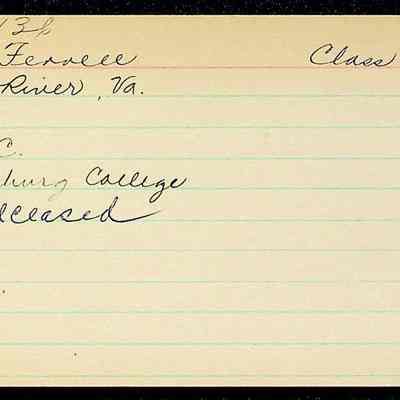 Ferrell Class
River, Va.
C.
burg College
deceased